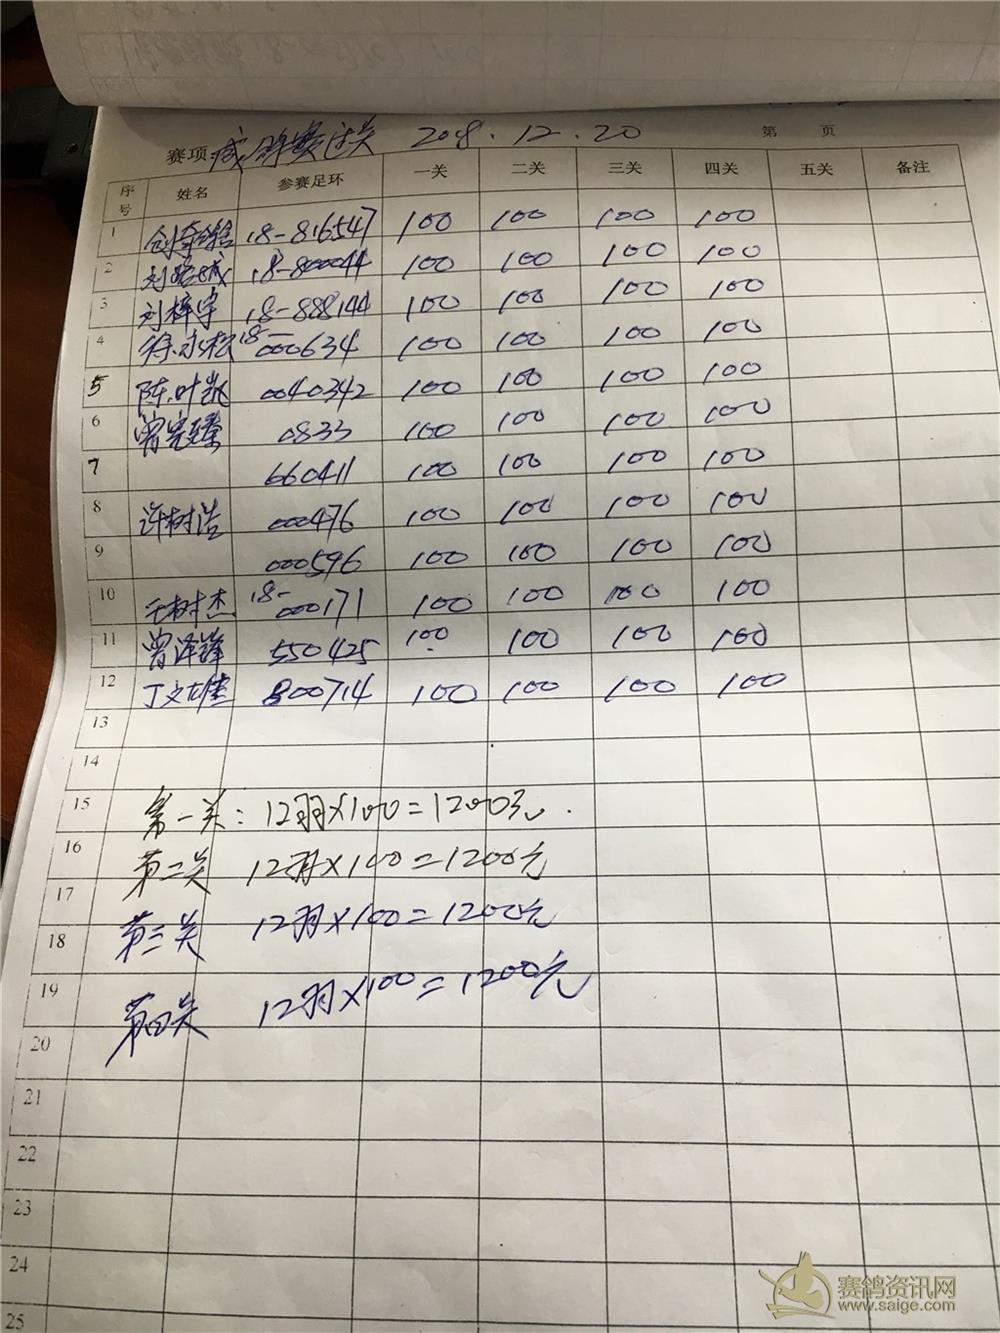 赛项 成 锦赛过关 2018.12.20 第 页
序号 姓名 参赛足环 一关 二关 三关 四关 五关 备注
1 18-816547 100 100 100 100
2 18-800044 100 100 100 100
3 刘梓宇 18-888144 100 100 100 100
4 徐永松 18-000634 100 100 100 100
5 陈叶凯 0040342 100 100 100 100
6 曾宪臻 0833 100 100 100 100
7 660411 100 100 100 100
8 许树浩 000476 100 100 100 100
9 000596 100 100 100 100
10 王树杰 18-000171 100 100 100 100
11 曾泽锋 550425 100 100 100 100
12 丁文雄 800714 100 100 100 100
13
14
15 第一关: 12羽×100=1200元.
16 第二关 12羽×100=1200元
17
18 第三关 12羽×100=1200元
19 第四关 12羽×100=1200元
20
21
22
23
24
25
赛鸽资讯网
www.saige.com